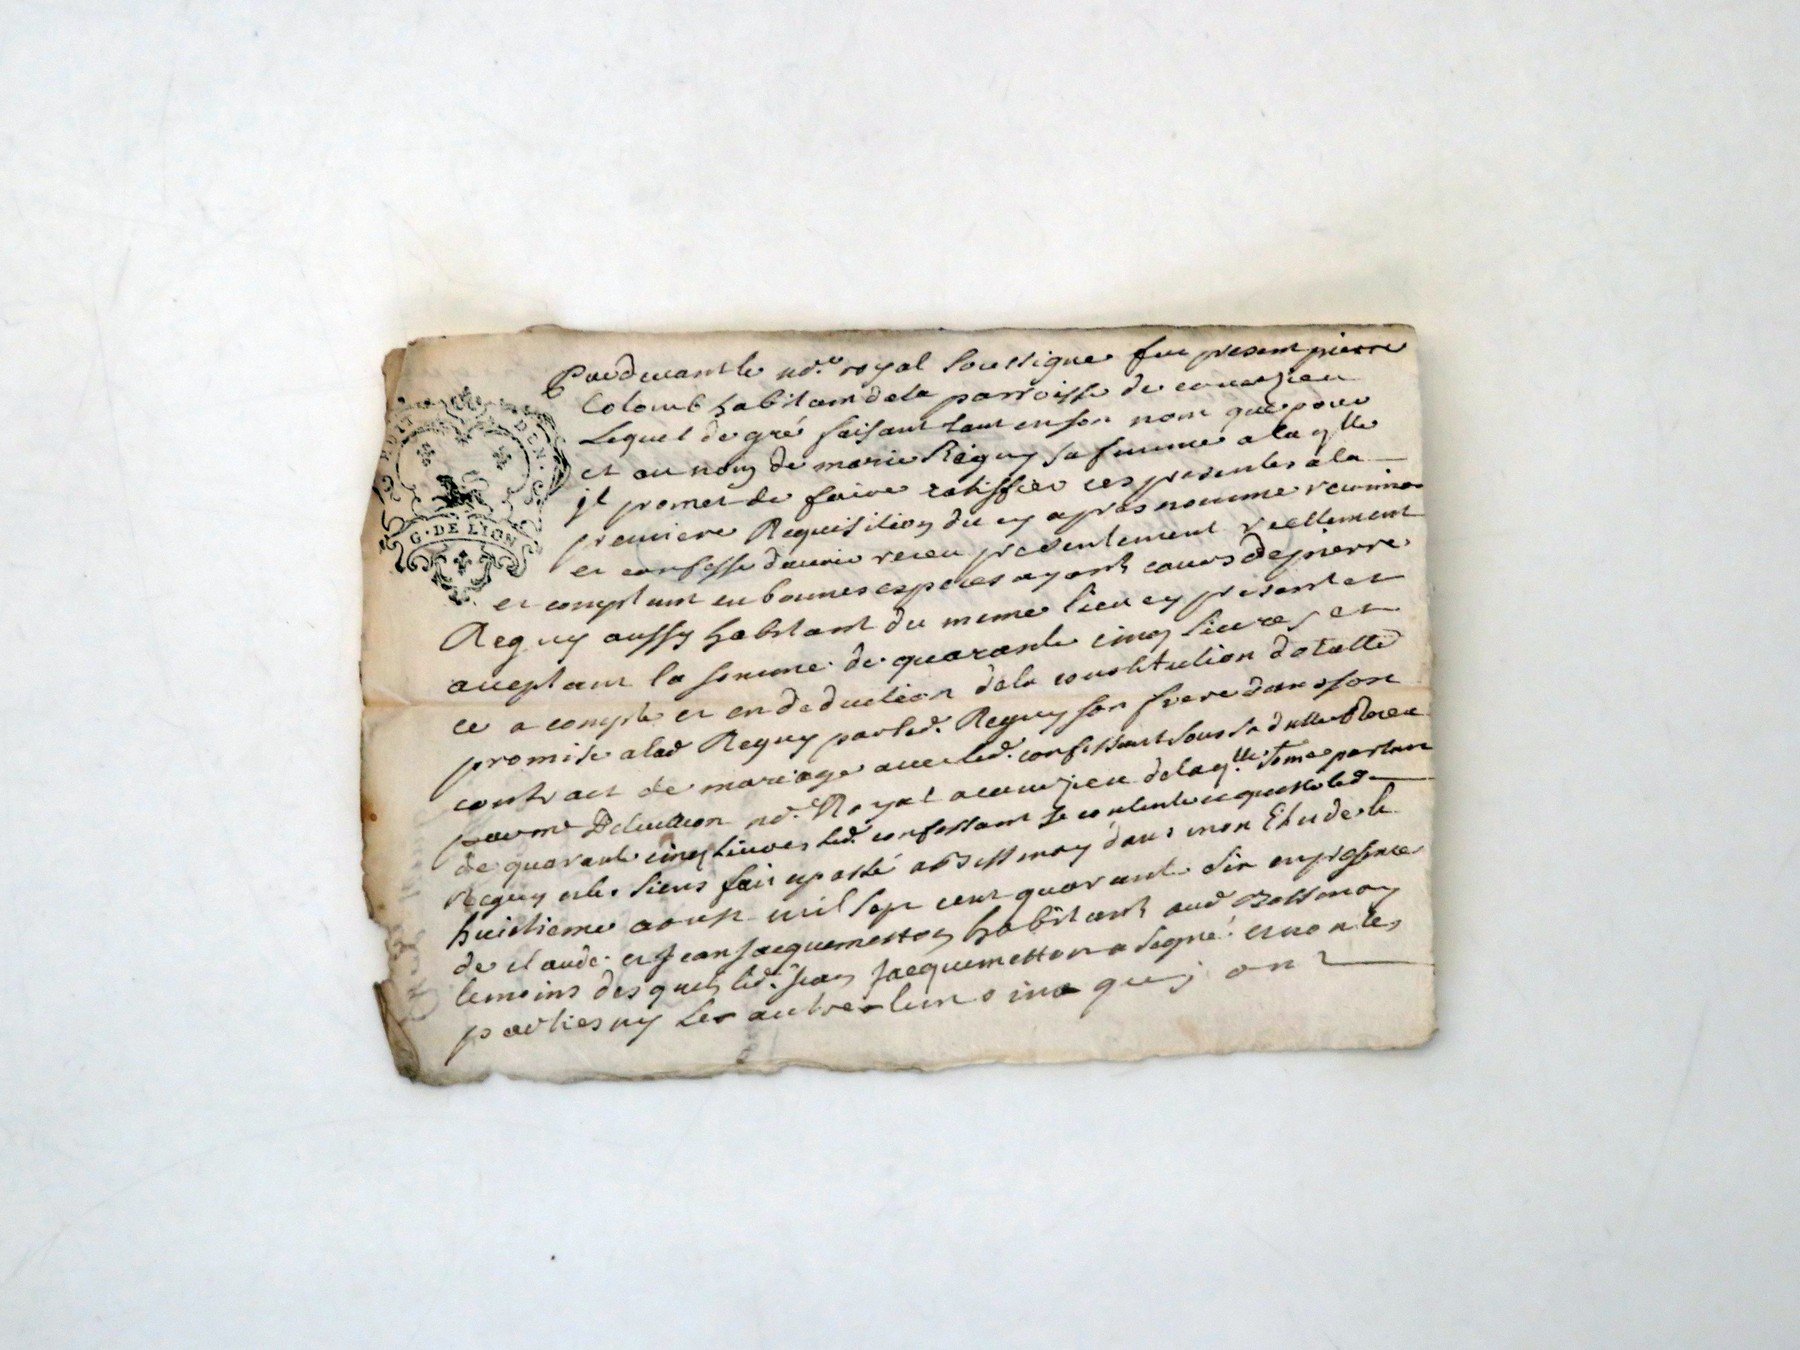 G. DE LYON
Pardevant le no.re royal soussigné fut present pierre
Colomb habitant dela parroisse de
Lequel de gré faisant tant en son nom que pour
et au nom de marie Reguy sa femme a laqlle
jl promet de faire ratiffier ces presentes a la
premiere Requisition du cy apres nommé
et confesse davoir receu presentement reellement
et comptant en bonnes especes ayant cours de pierre
Reguy aussy habitant du meme lieu cy present et
aceptant la somme de quarante cinq livres et
ce a compte et en deduction dela constitution dotalle
promise a lad Reguy par led. Reguy son frere dans son
contract de mariage avec led. confessant sous sa datte Receu
par me no.e Royal a dela qlle some
de quarante cinq livres led. confessant se contente
Reguy et les siens fait et passé a dans mon Etude le
huictieme aoust mil sept cent quarante six en presence
de claude et Jean Jacquemetton habitant aud
temoins desquels led. Jean Jacquemetton a signé et non les
parties ny les autre temoins quj ont